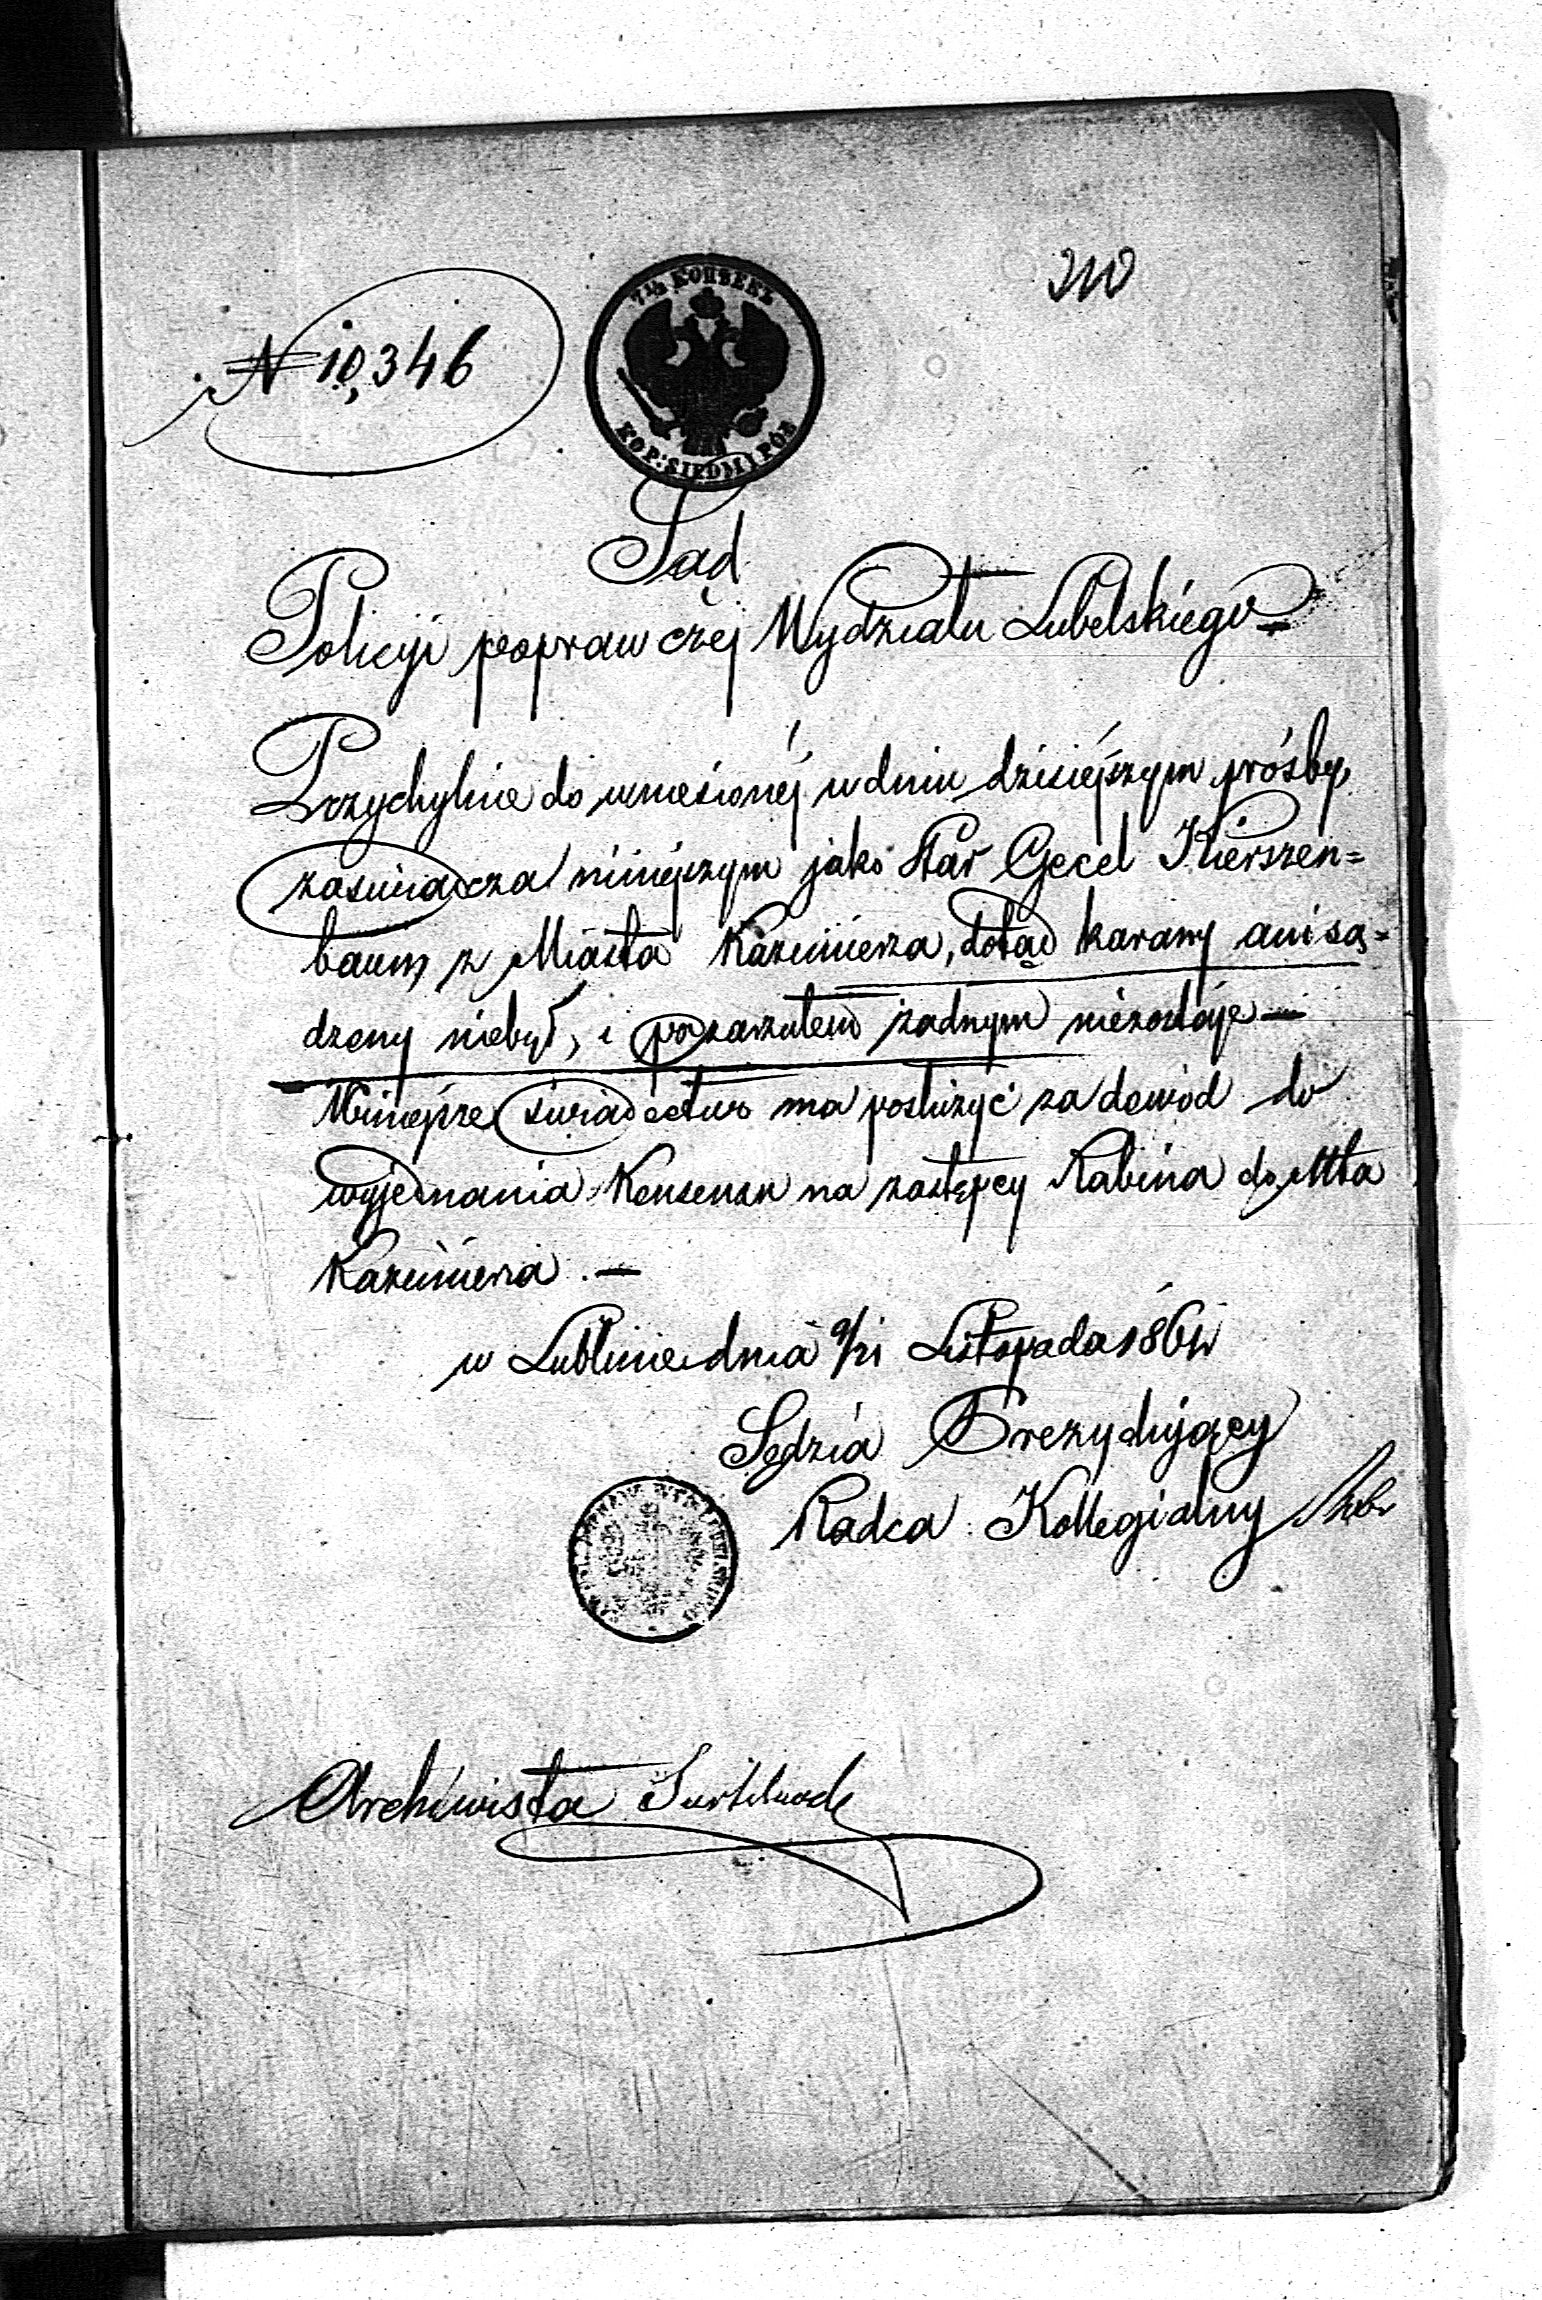 210
№ 10,346
7½ КОПѢЕКЪ
KOP: SIEDM I PÓŁ
Sąd
Policyi poprawczej Wydziału Lubelskiego
Przychylnie do wniesionéj w dniu dzisiéjszym prośby,
zaświadcza niniejszym jako Star Gecel Kierszen=
baum z Miasta Kazimierza, dotąd karany ani są=
dzony niebył, i pozarzutem żadnym niezostaje —
Niniejsze świadectwo ma posłużyć za dowód do
wyjednania Konsensu na zastępcy Rabina do Mta
Kazimierza. —
w Lublinie dnia 9/21 Listopada 1864
Sędzia Prezydujący
Radca Kollegialny
Archiwista